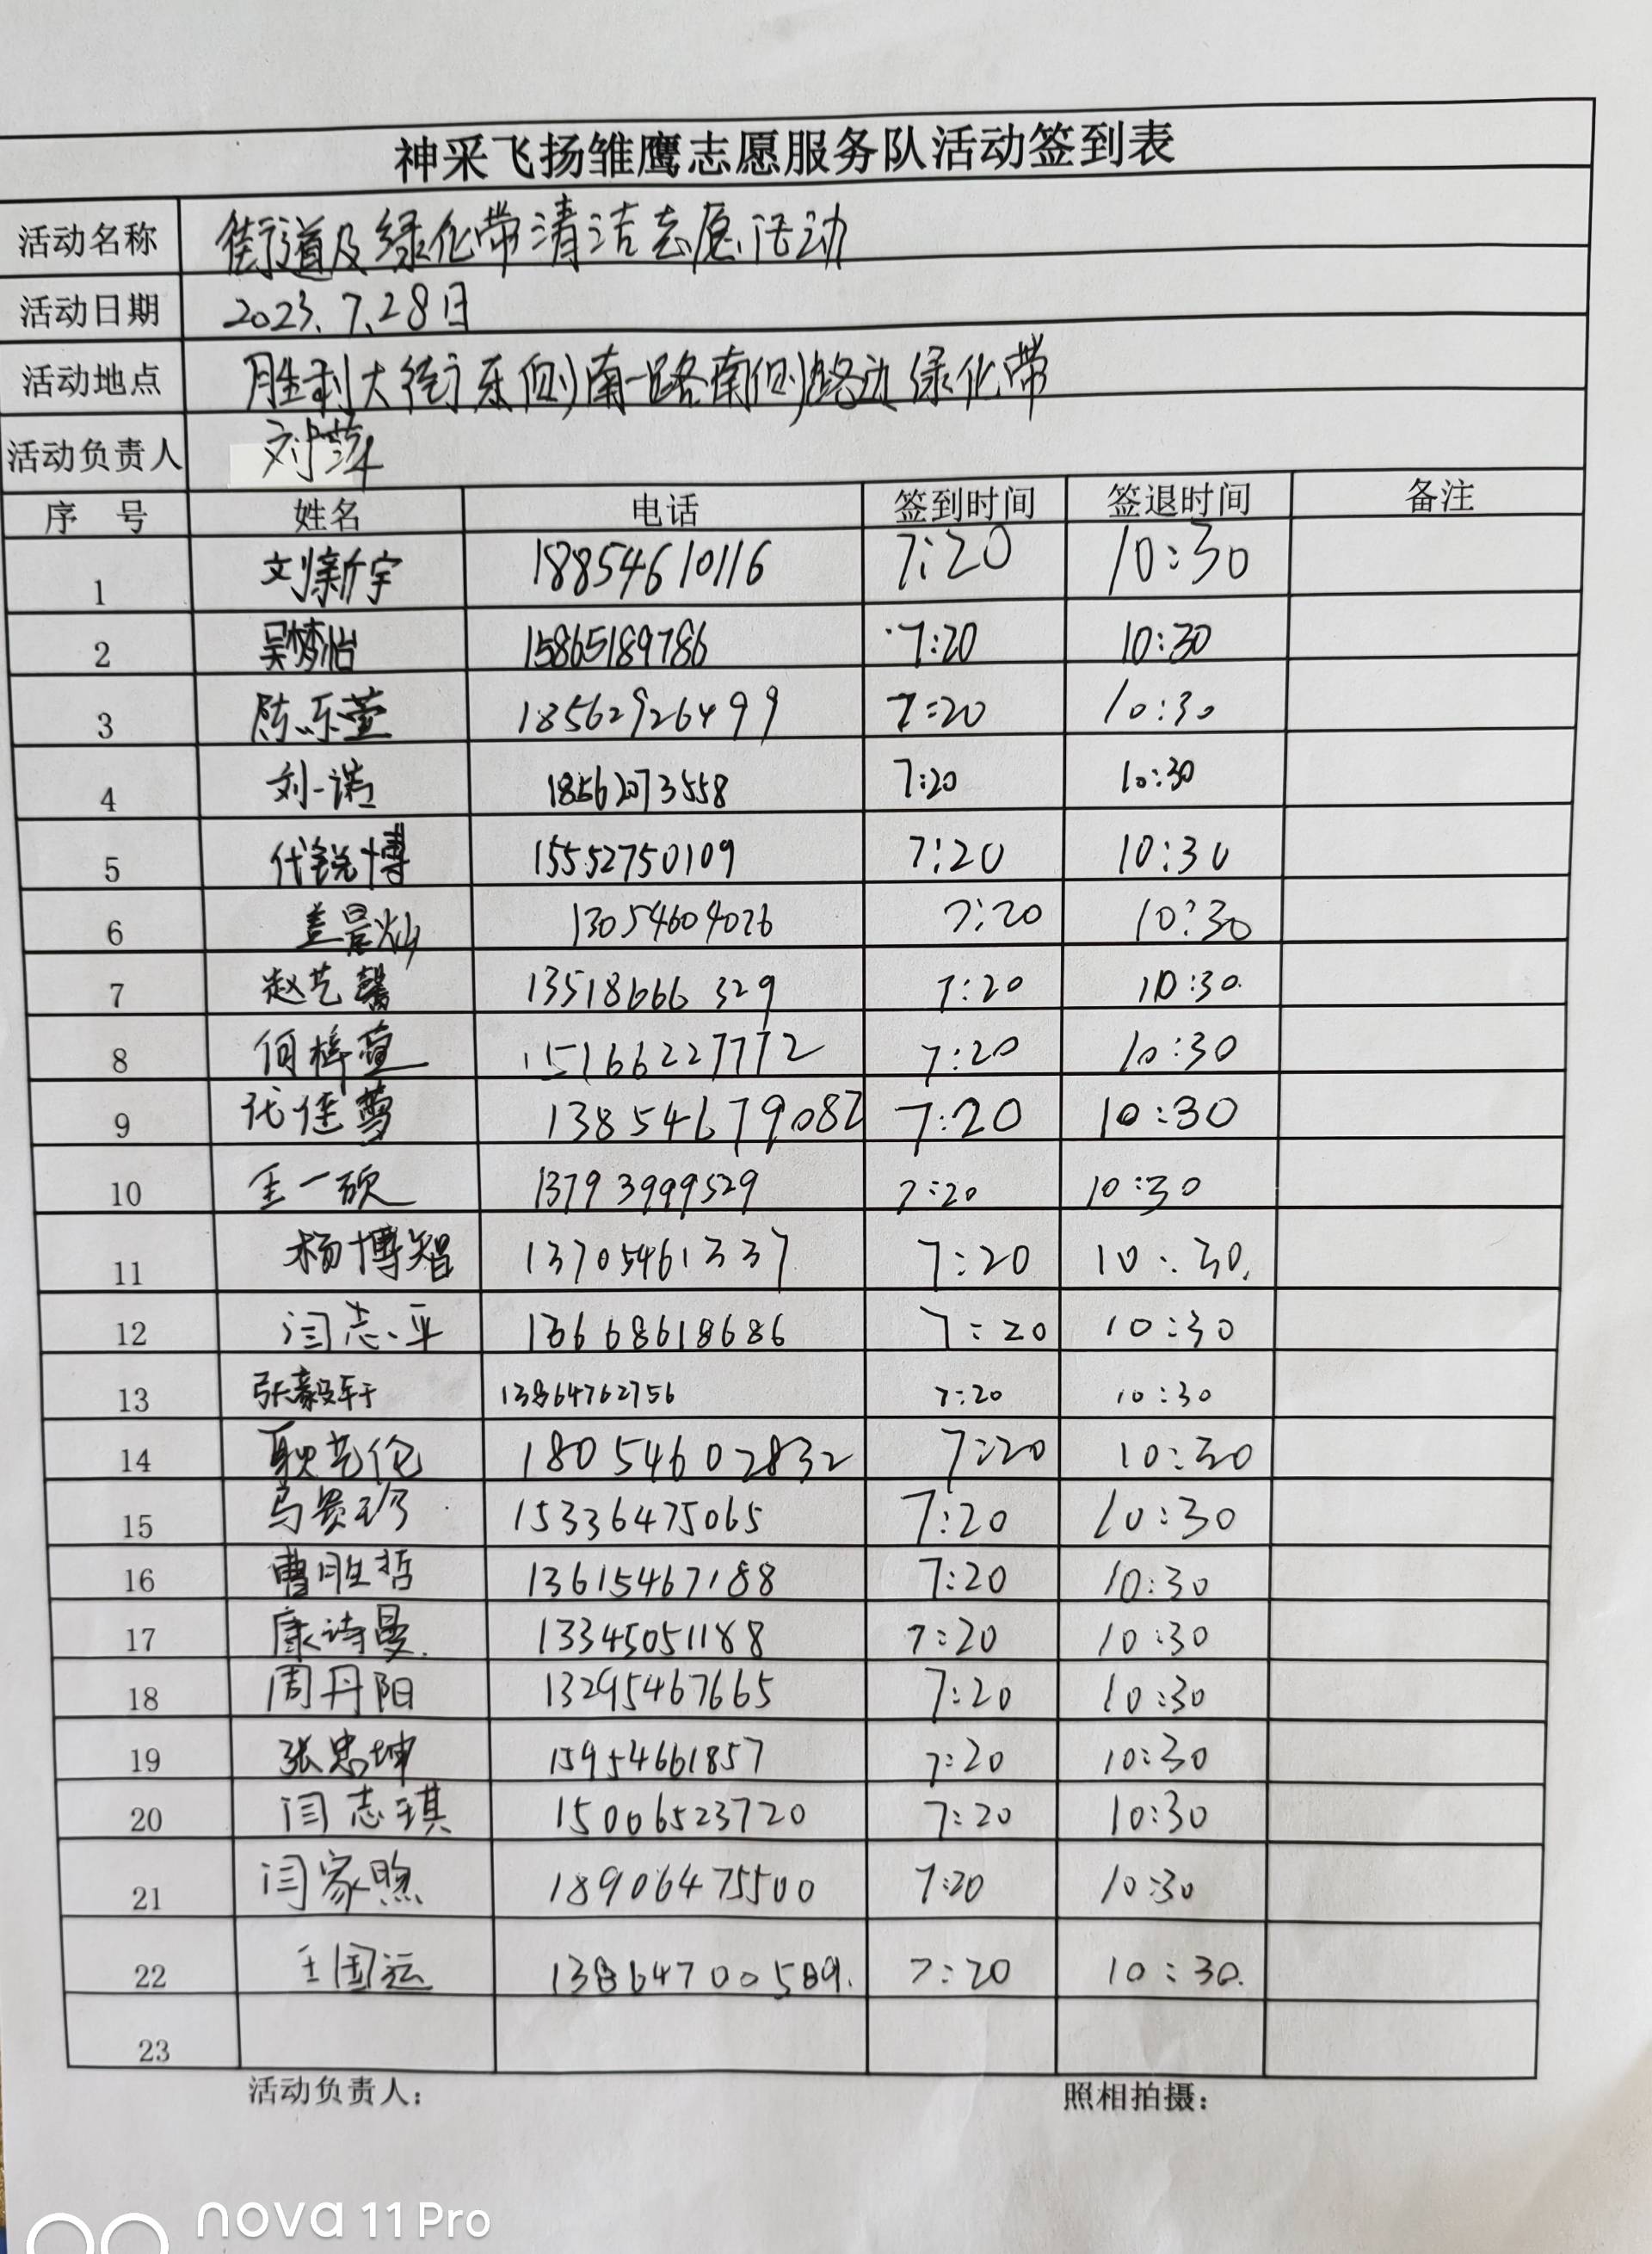 神采飞扬雏鹰志愿服务队活动签到表
活动名称 街道及绿化带清洁志愿活动
活动日期 2023.7.28日
活动地点 胜利大街东侧南一路南侧路边绿化带
活动负责人 刘萍
序 号 姓名 电话 签到时间 签退时间 备注
1 刘新宇 18854610116 7:20 10:30
2 吴梦怡 15865189786 7:20 10:30
3 陈乐萱 18562926499 7:20 10:30
4 刘一诺 18562073558 7:20 10:30
5 代锐博 15552750109 7:20 10:30
6 盖景灿 13054604026 7:20 10:30
7 赵艺馨 13518666329 7:20 10:30
8 何梓萱 15166227772 7:20 10:30
9 13854679082 7:20 10:30
10 王一硕 13793999529 7:20 10:30
11 杨博智 13705461337 7:20 10:30
12 闫志平 13668618686 7:20 10:30
13 张毅轩 13864762756 7:20 10:30
14 耿艺伦 18054602832 7:20 10:30
15 马贵珍 15336475065 7:20 10:30
16 曹胜哲 13615467188 7:20 10:30
17 康诗曼 13345051188 7:20 10:30
18 周丹阳 13295467665 7:20 10:30
19 张忠坤 15954661857 7:20 10:30
20 闫志琪 15006523720 7:20 10:30
21 闫家煦 18906475500 7:20 10:30
22 王国运 13864700589 7:20 10:30
23
活动负责人： 照相拍摄：
nova 11 Pro